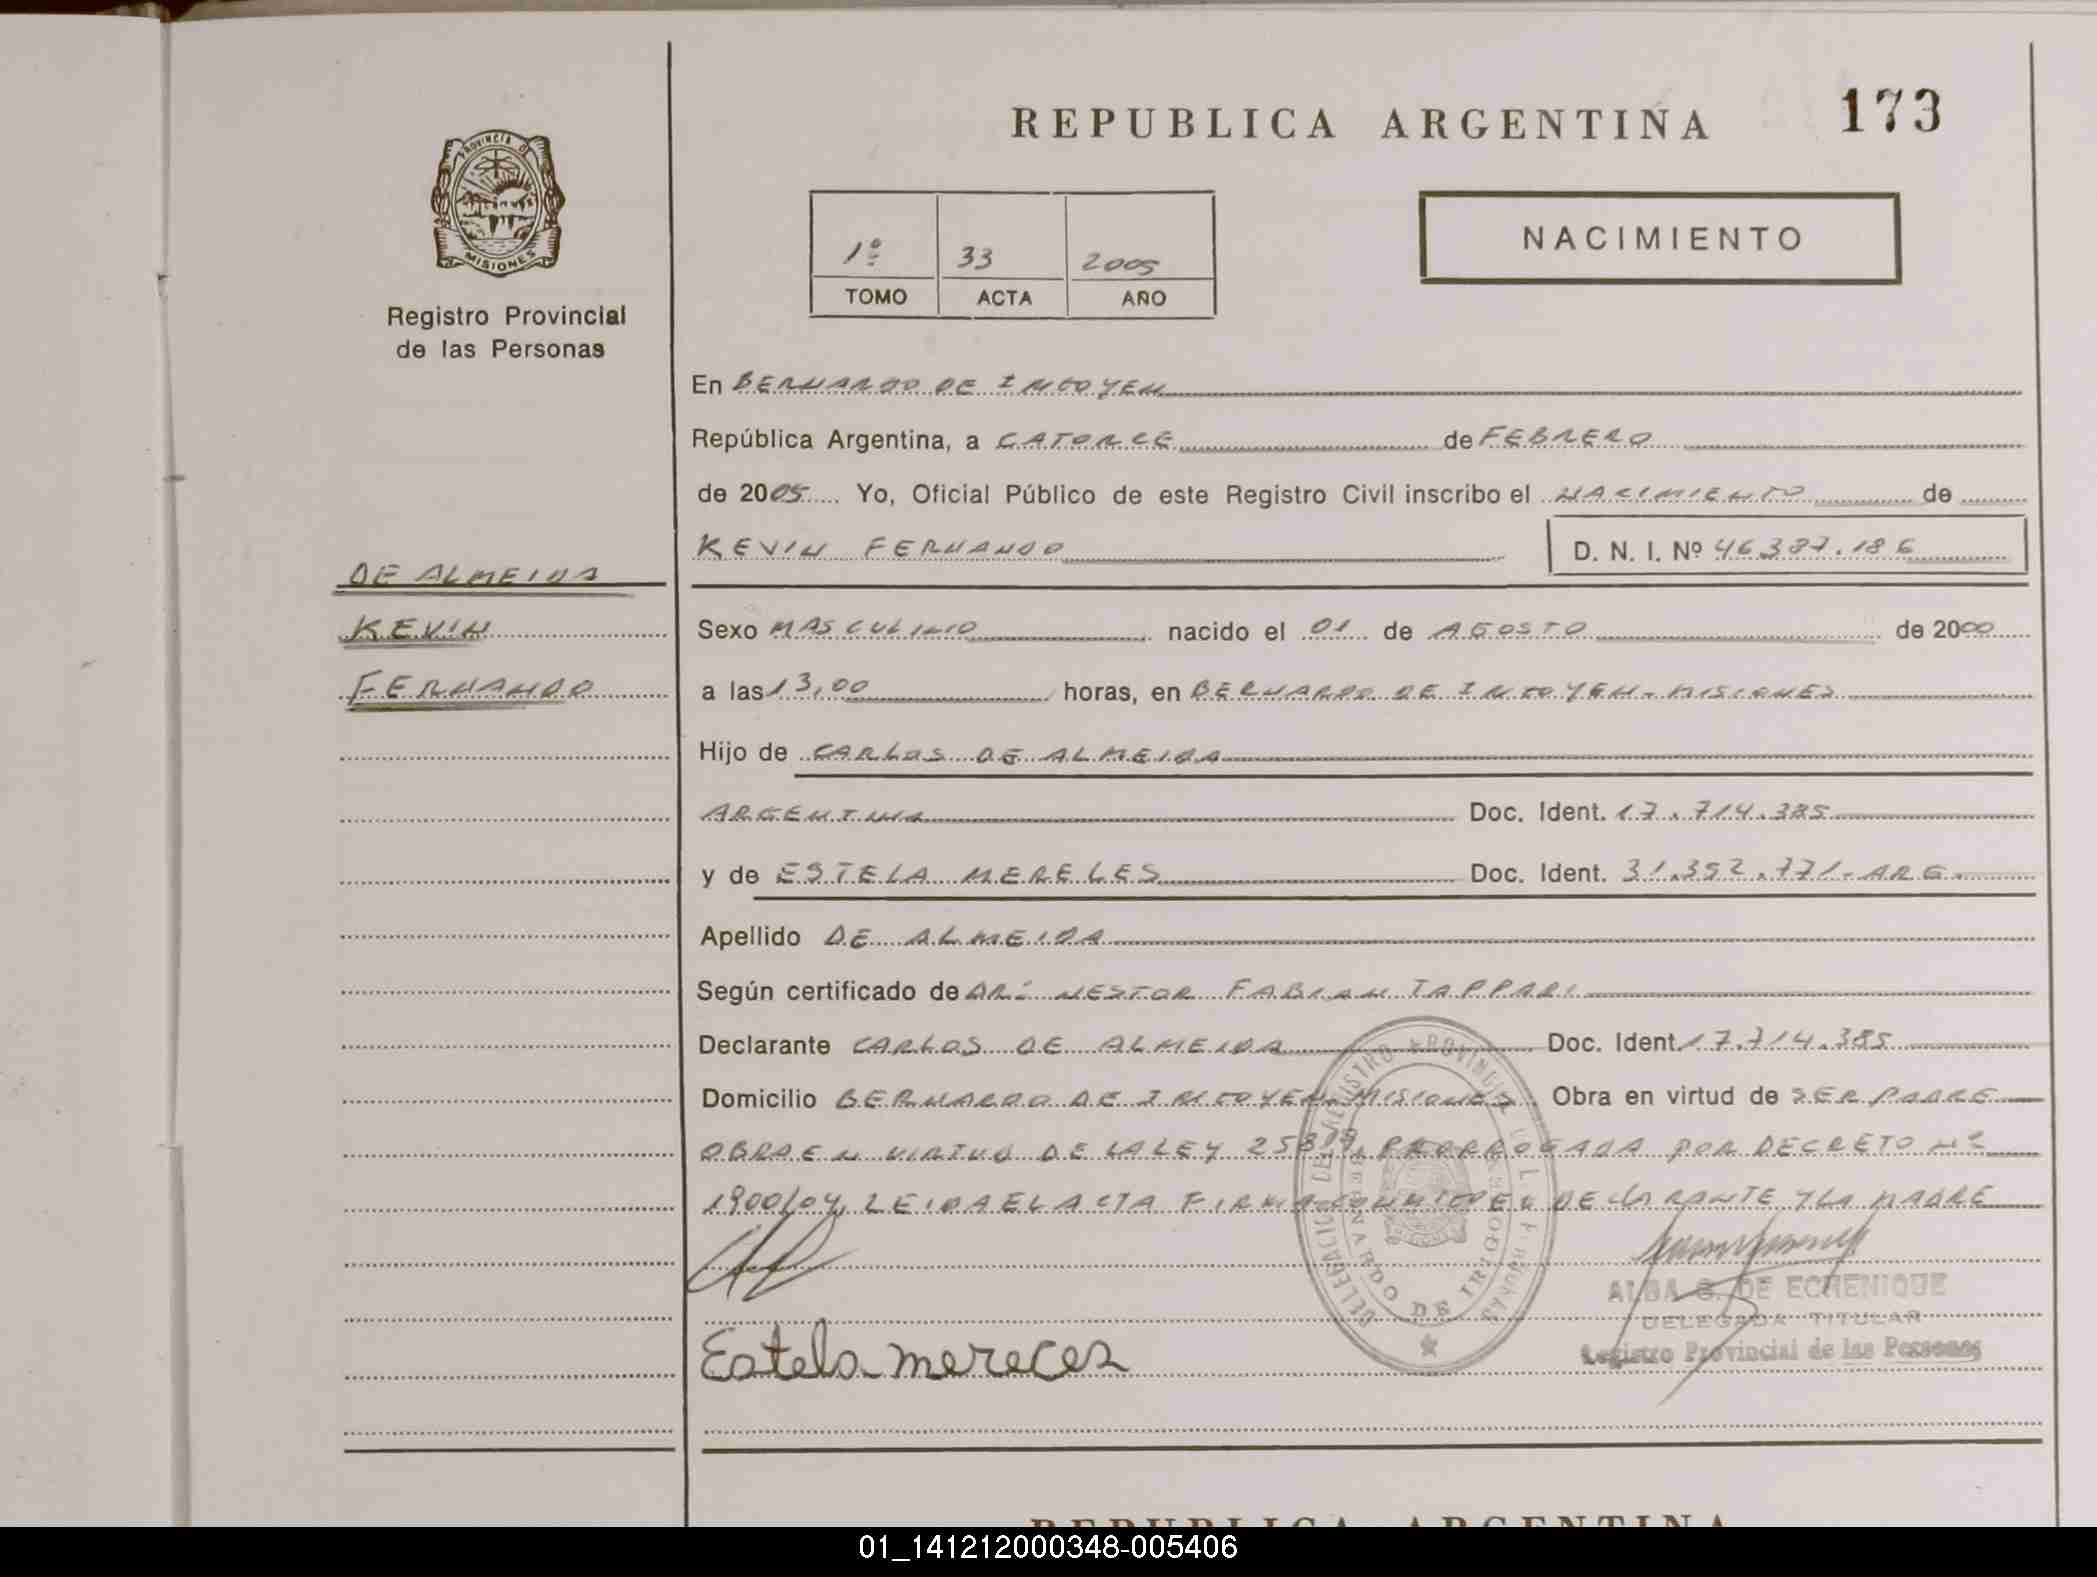 REPUBLICA ARGENTINA 173
PROVINCIA DE
MISIONES
Registro Provincial
de las Personas
1º 33 2005
TOMO ACTA AÑO
NACIMIENTO
En BERNARDO DE IRIGOYEN
República Argentina, a CATORCE de FEBRERO
de 2005 Yo, Oficial Público de este Registro Civil inscribo el NACIMIENTO de
KEVIN FERNANDO D. N. I. Nº 46.387.186
DE ALMEIDA
KEVIN
FERNANDO
Sexo MASCULINO nacido el 01 de AGOSTO de 2000
a las 13,00 horas, en BERNARDO DE IRIGOYEN - MISIONES
Hijo de CARLOS DE ALMEIDA
ARGENTINA Doc. Ident. 17.714.385
y de ESTELA MERELES Doc. Ident. 31.352.771 - ARG.
Apellido DE ALMEIDA
Según certificado de DR: NESTOR FABIAN TAPPARI
Declarante CARLOS DE ALMEIDA Doc. Ident. 17.714.385
Domicilio BERNARDO DE IRIGOYEN MISIONES Obra en virtud de SER PADRE
OBRA EN VIRTUD DE LA LEY 25819, PRORROGADA POR DECRETO Nº
1900/04, LEIDA EL ACTA FIRMA CONMIGO EL DECLARANTE Y LA MADRE
Estela mereces
ALBA G. DE ECHENIQUE
DELEGADA TITULAR
Registro Provincial de las Personas
BERNARDO DE IRIGOYEN
REPUBLICA ARGENTINA
01_141212000348-005406